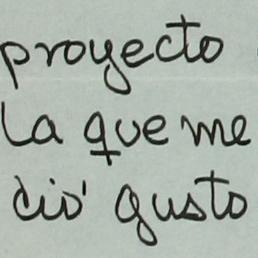 proyecto
La que me
dió gusto